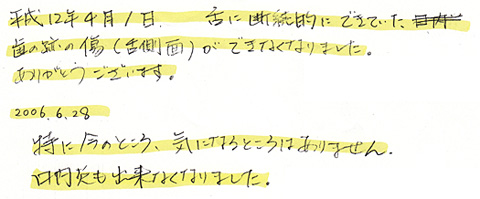 平成12年4月1日. 舌に断続的にできていた、
歯の跡の傷(舌側面)ができなくなりました。
ありがとうございます。
2006.6.28
特に今のところ、気になるところはありません.
口内炎も出来なくなりました。